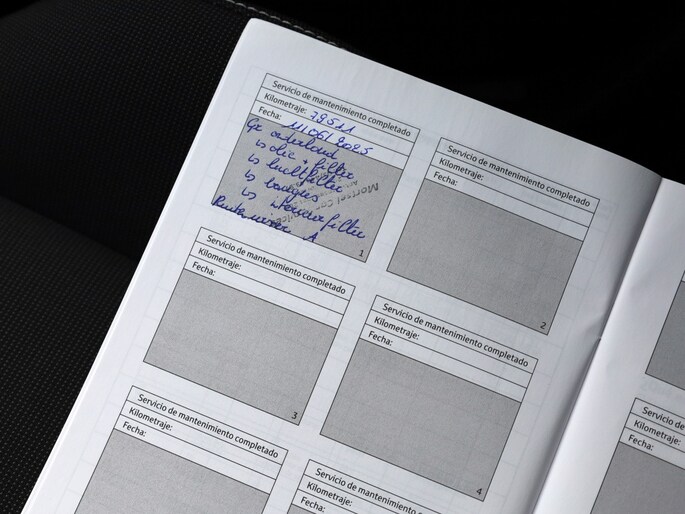 Servicio de mantenimiento completado
Kilometraje: 79511
Fecha: 11/06/2025
Gr onderhoud
↳ olie + filter
↳ luchtfilter
↳ bougies
↳ interieurfilter
1
Servicio de mantenimiento completado
Kilometraje:
Fecha:
2
Servicio de mantenimiento completado
Kilometraje:
Fecha:
3
Servicio de mantenimiento completado
Kilometraje:
Fecha:
4
Servicio de mantenimiento completado
Kilometraje:
Fecha:
Servicio de mantenimiento completado
Kilometraje:
Fecha:
Servicio de
Kilometraje:
Fecha: